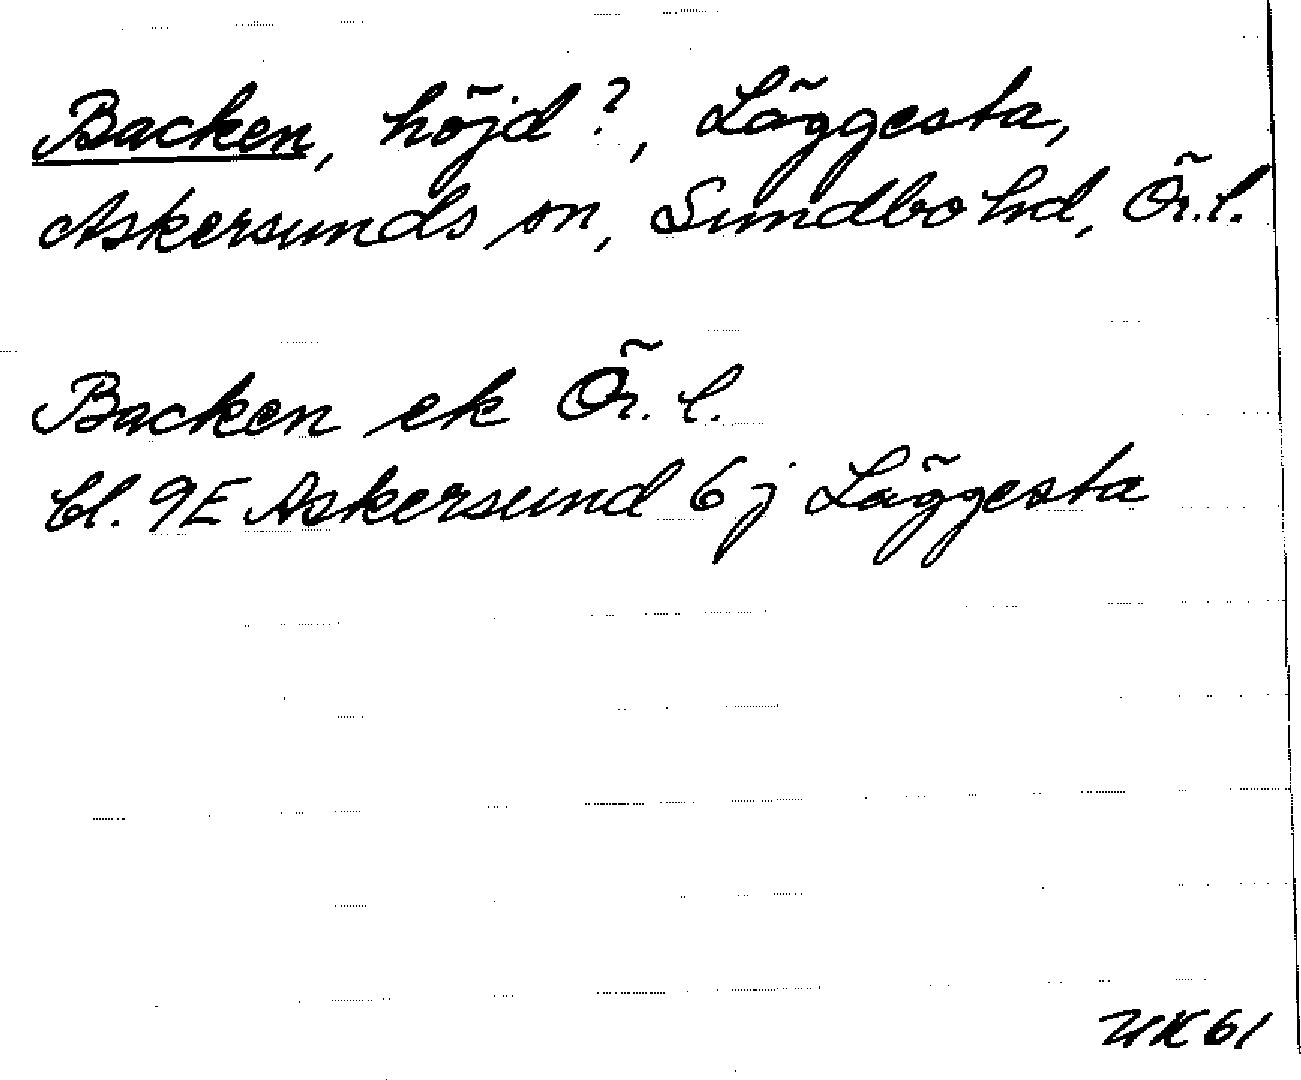 Backen, höjd?, Läggesta,
Askersunds sn, Sundbo hd, Ör.l.
Backen ek Ör. l.
bl. 9E Askersund 6j Läggesta
UK61